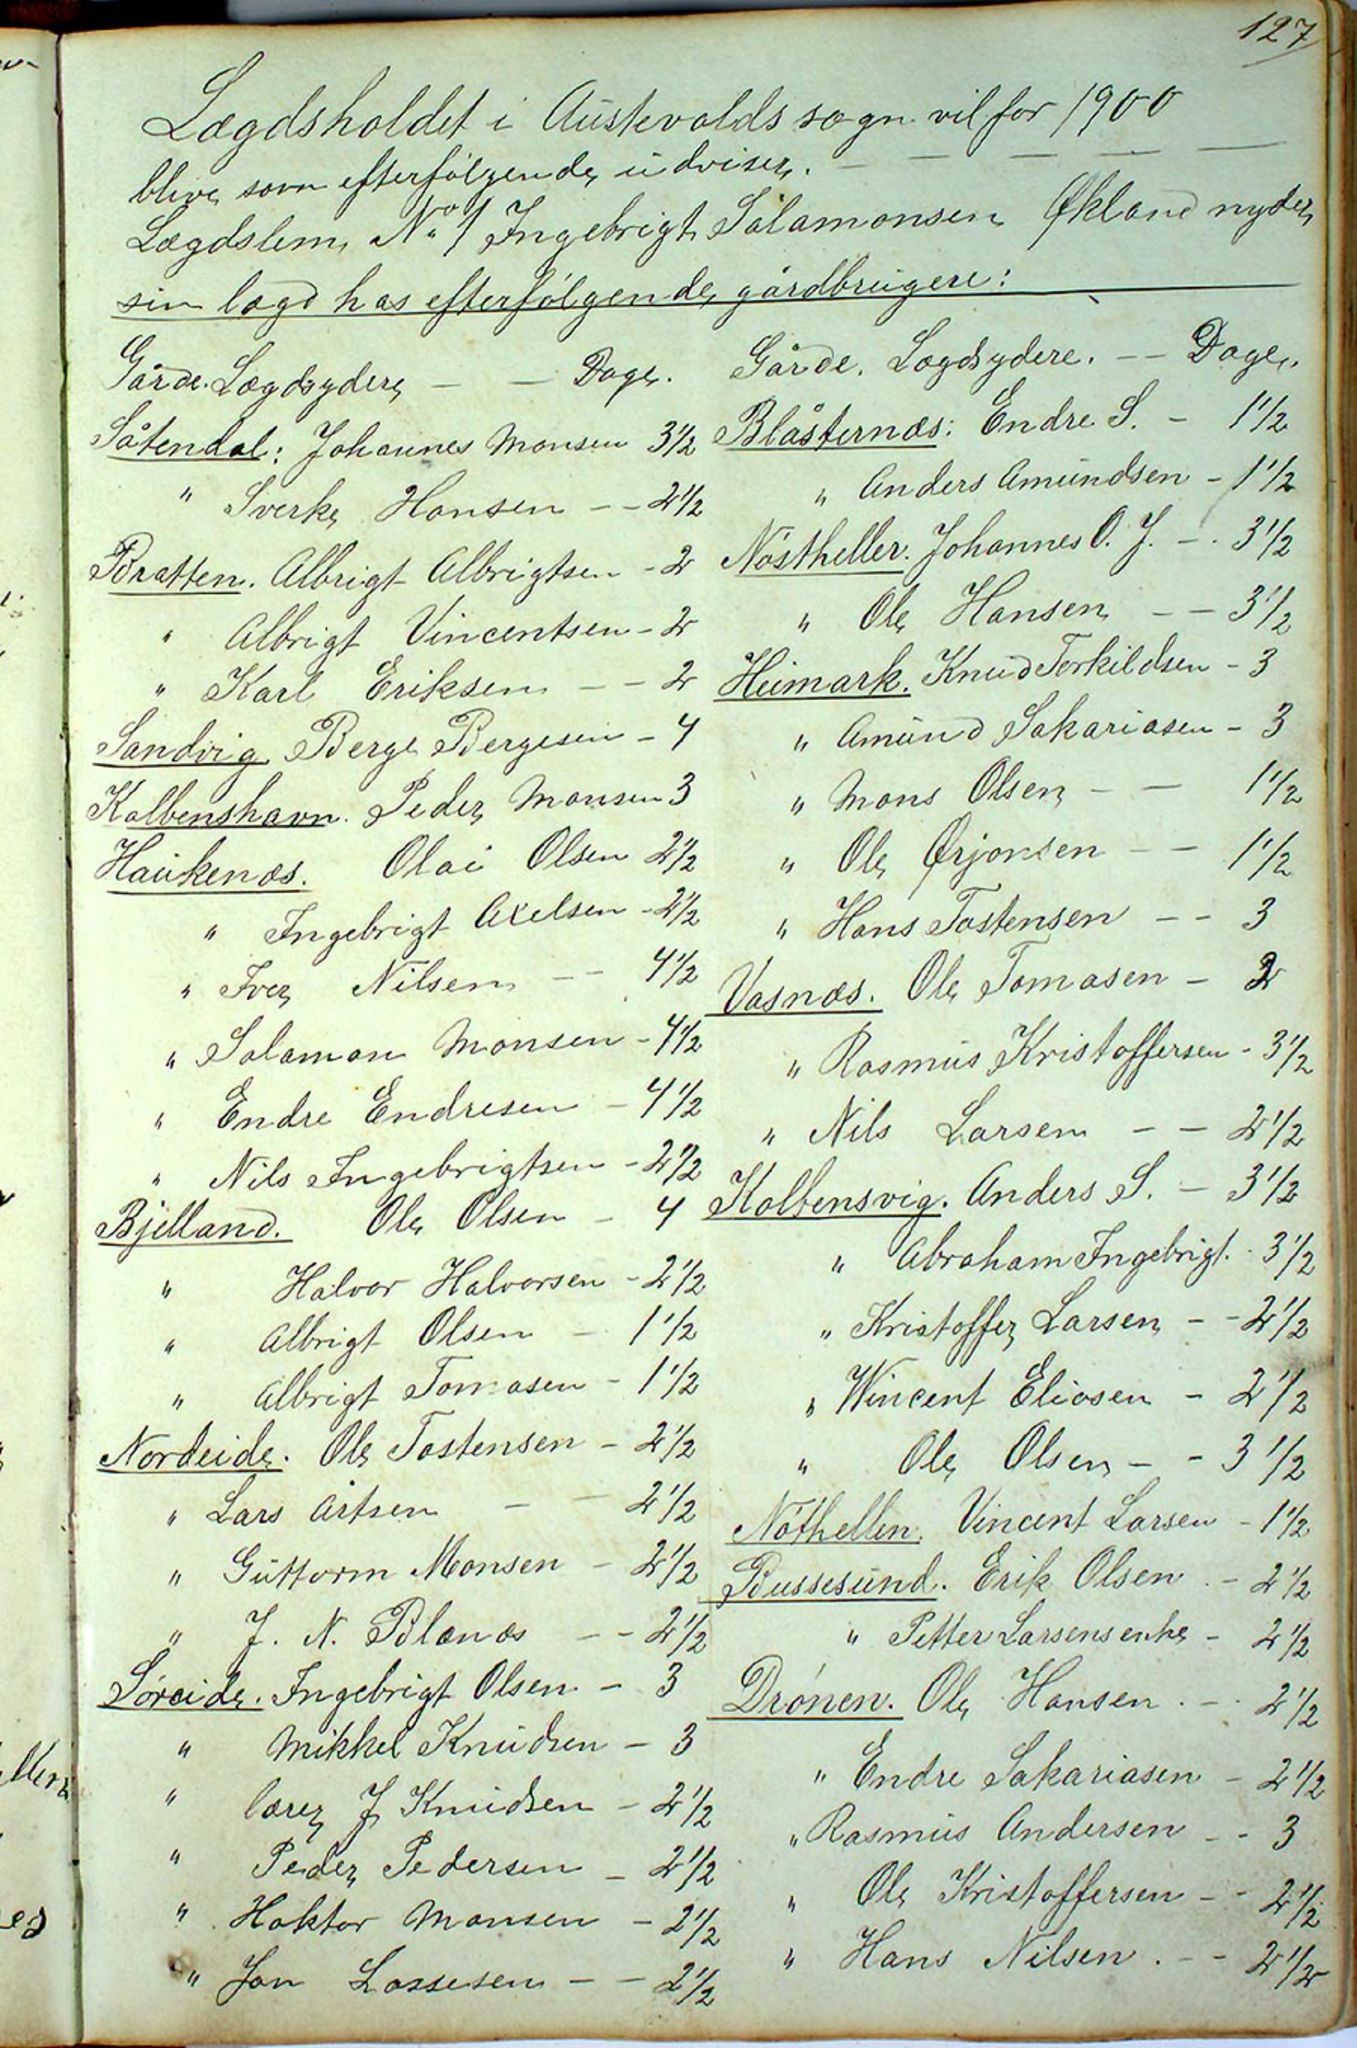 127
Lægdsholdet i Austevolds sogn vil for 1900
blive som efterfølgende udviser. — — — — —
Lægdslem No 1 Ingebrigt Salamonsen Økland nyder
sin lægd hos efterfølgende gårdbrugere:
Gårde. Lægdsydere — — Dage.
Såtendal: Johannes Monsen 3 1/2
" Sverke Hansen — — 2 1/2
Bratten. Albrigt Albrigtsen — 2
" Albrigt Vincentsen — 2
" Karl Eriksen — — 2
Sandvig. Berge Bergesen — 4
Kolbenshavn. Peder Monsen 3
Haukenæs. Olai Olsen 2 1/2
" Ingebrigt Axelsen — 2 1/2
" Iver Nilsen — — 4 1/2
" Salamon Monsen — 4 1/2
" Endre Endresen — 4 1/2
" Nils Ingebrigtsen — 2 1/2
Bjelland. Ole Olsen — 4
" Halvor Halvorsen — 2 1/2
" Albrigt Olsen — 1 1/2
" Albrigt Tomasen — 1 1/2
Nordeide. Ole Tostensen — 2 1/2
" Lars Artsen — — 2 1/2
" Guttorm Monsen — 2 1/2
" J. N. Blænes — — 2 1/2
Søreide. Ingebrigt Olsen — 3
" Mikkel Knudsen — 3
" lærer J Knudsen — 2 1/2
" Peder Pedersen — 2 1/2
" Haktor Monsen — 2 1/2
" Jon Lassesen — — 2 1/2
Gårde. Lægdsydere. — — Dage.
Blåsternæs: Endre S. — 1 1/2
" Anders Amundsen — 1 1/2
Nøstheller. Johannes O. J. — . 3 1/2
" Ole Hansen — — 3 1/2
Heimark. Knud Torkildsen — 3
" Amund Sakariasen — 3
" Mons Olsen — — 1 1/2
" Ole Ørjonsen — — 1 1/2
" Hans Tostensen — — 3
Vasnæs. Ole Tomasen — 2
" Rasmus Kristoffersen — 3 1/2
" Nils Larsen — — 2 1/2
Kolbensvig. Anders S. — 3 1/2
" Abraham Ingebrigt. 3 1/2
" Kristoffer Larsen — — 2 1/2
" Wincent Eliasen — 2 1/2
" Ole Olsen — — 3 1/2
Nøthellen. Vincent Larsen — 1 1/2
Bussesund. Erik Olsen . — 2 1/2
" Petter Larsens enke — 2 1/2
Drønen. Ole Hansen . — . 2 1/2
" Endre Sakariasen — 2 1/2
" Rasmus Andersen — — 3
" Ole Kristoffersen — — 2 1/2
" Hans Nilsen . — — 2 1/2